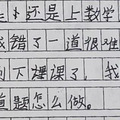 还是上数学
我错了一道很难
到下课了。我
道题怎么做。